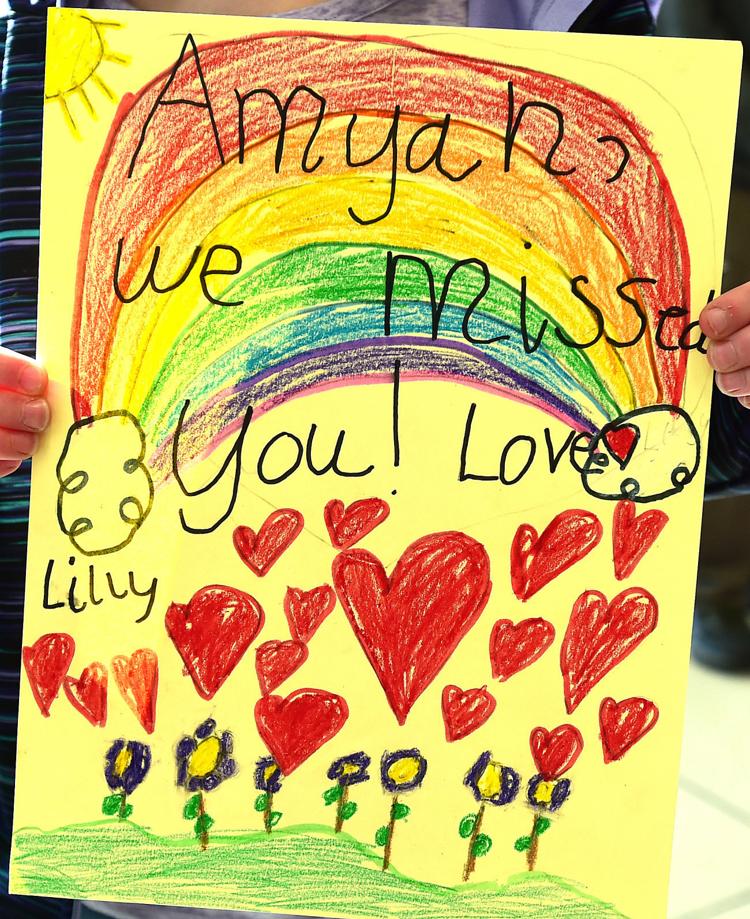 Amyah,
we missed
You! Love
Lilly